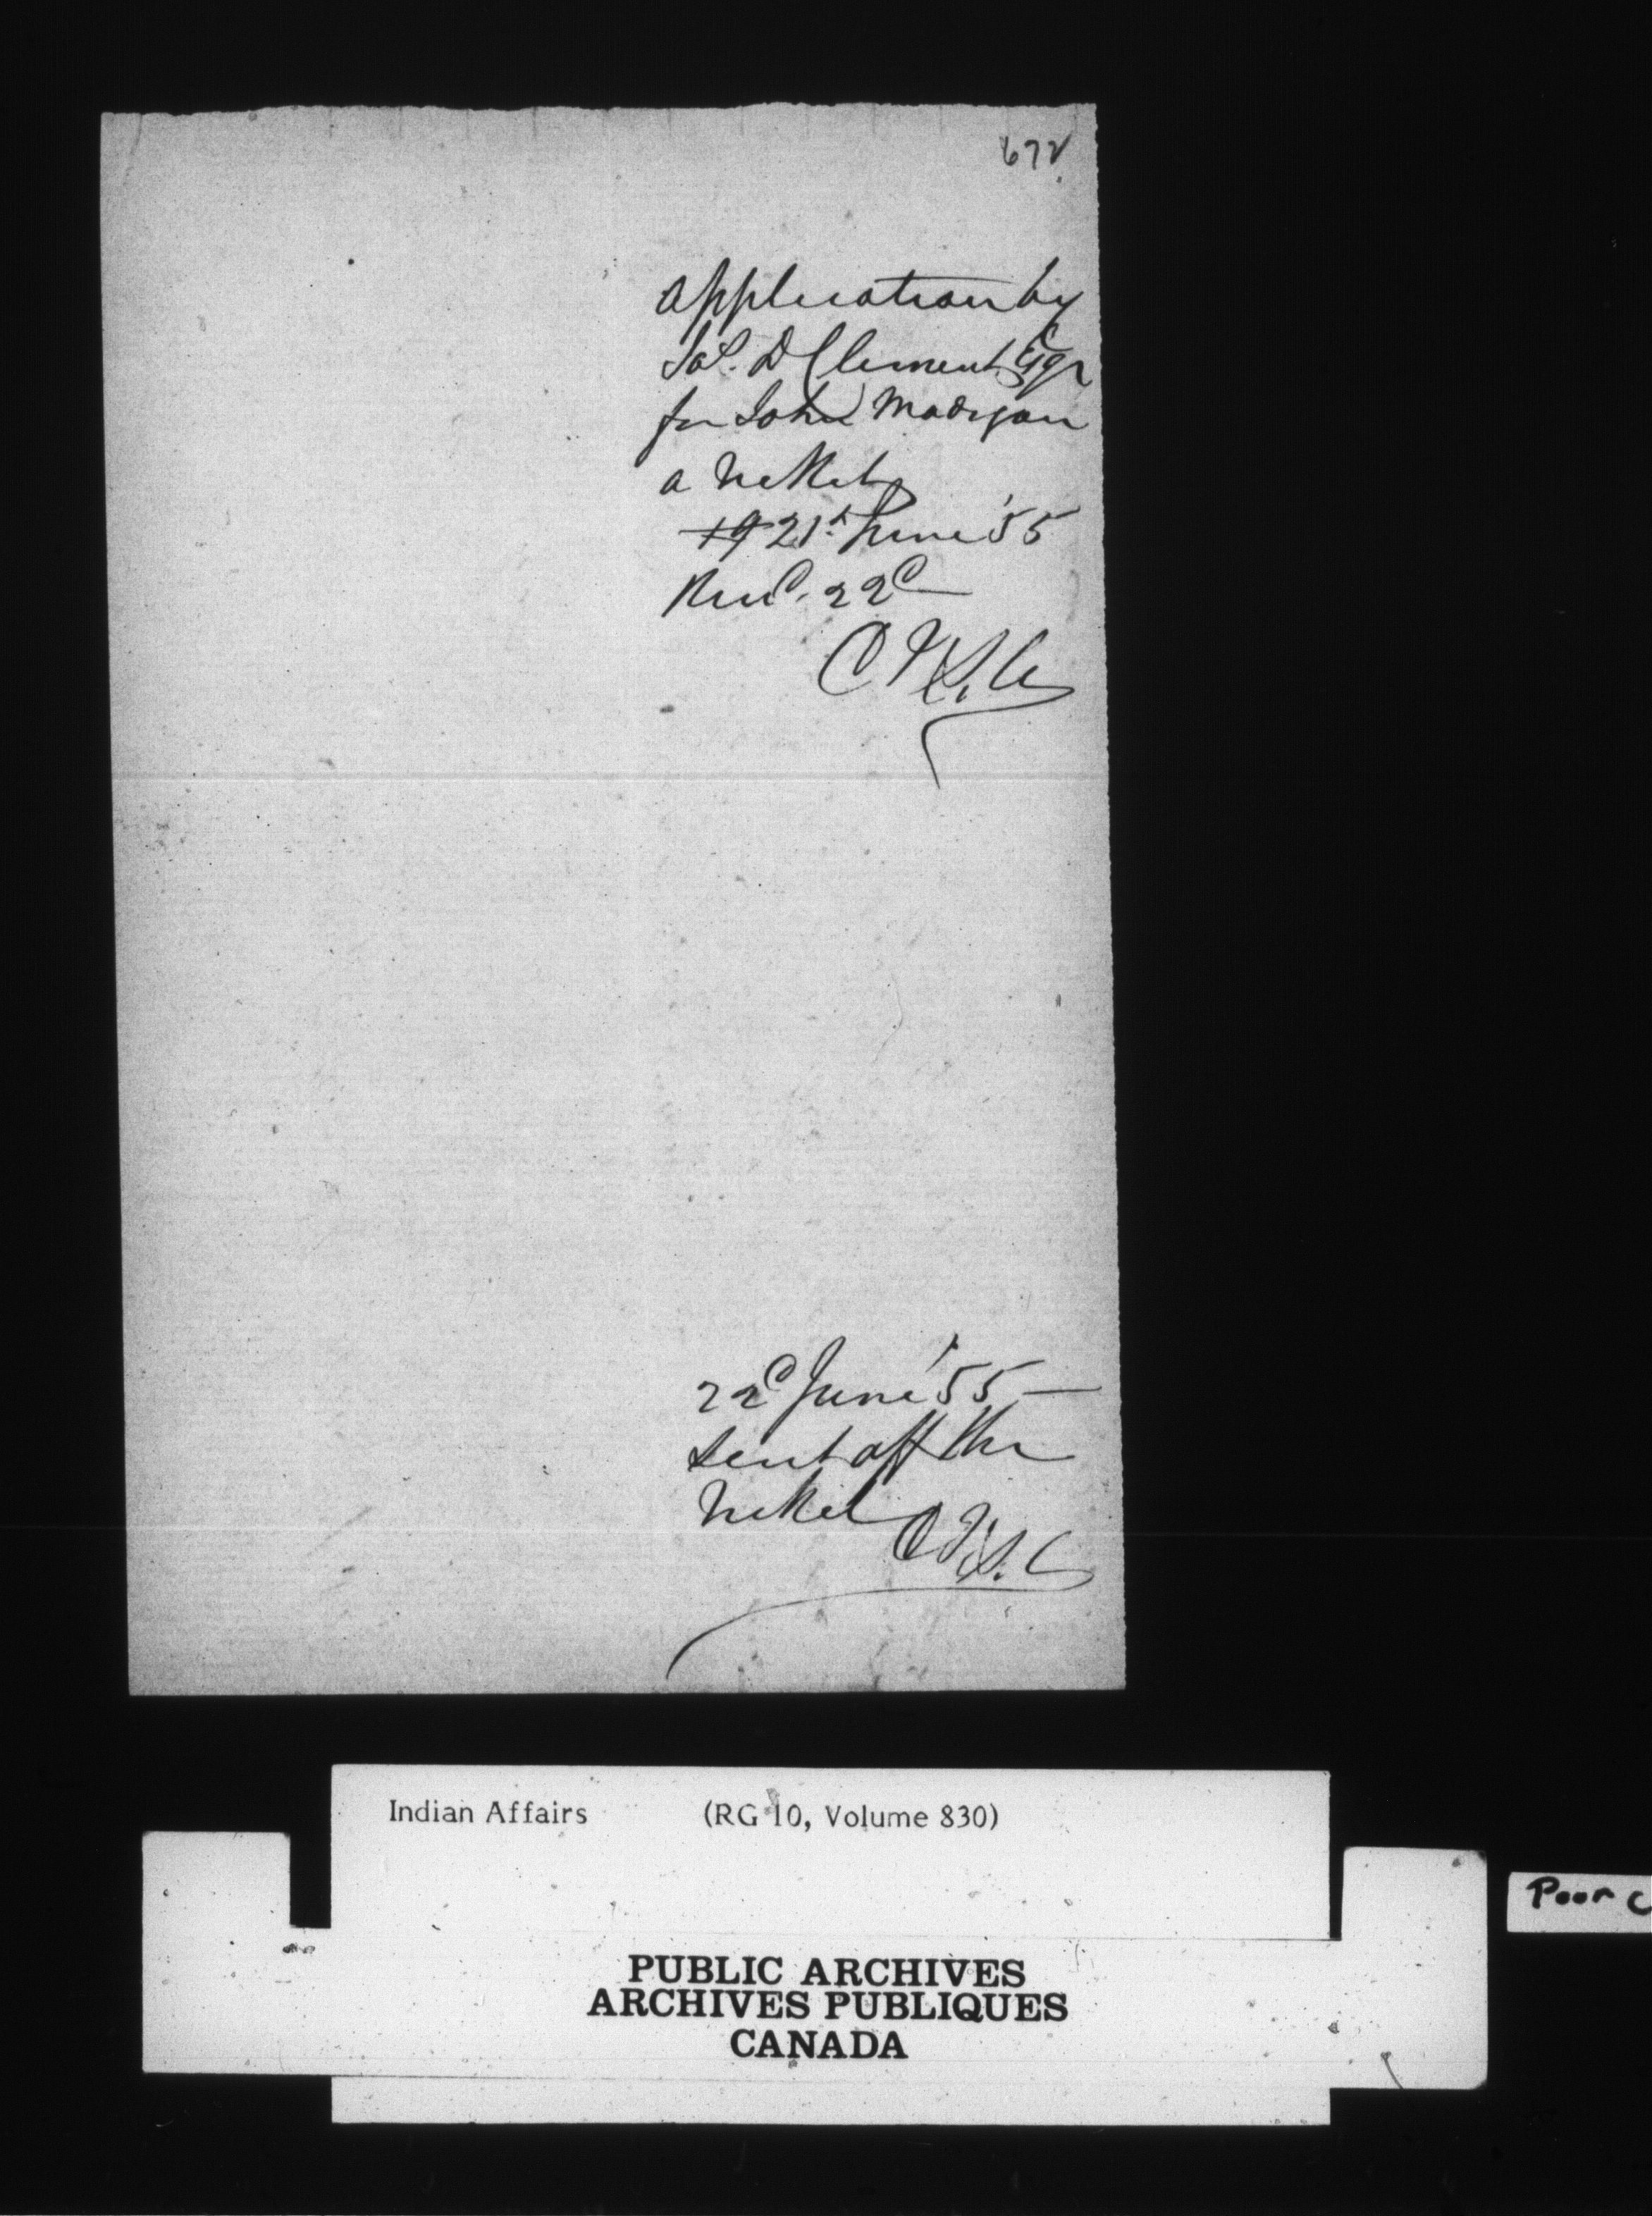 672
Application by
Jos. D Clement Esqr
for John Madigan
a ticket
19 21st June '55
Recd. 22d
22d June '55 —
sent off the
ticket
Indian Affairs (RG 10, Volume 830)
Poor C
PUBLIC ARCHIVES
ARCHIVES PUBLIQUES
CANADA